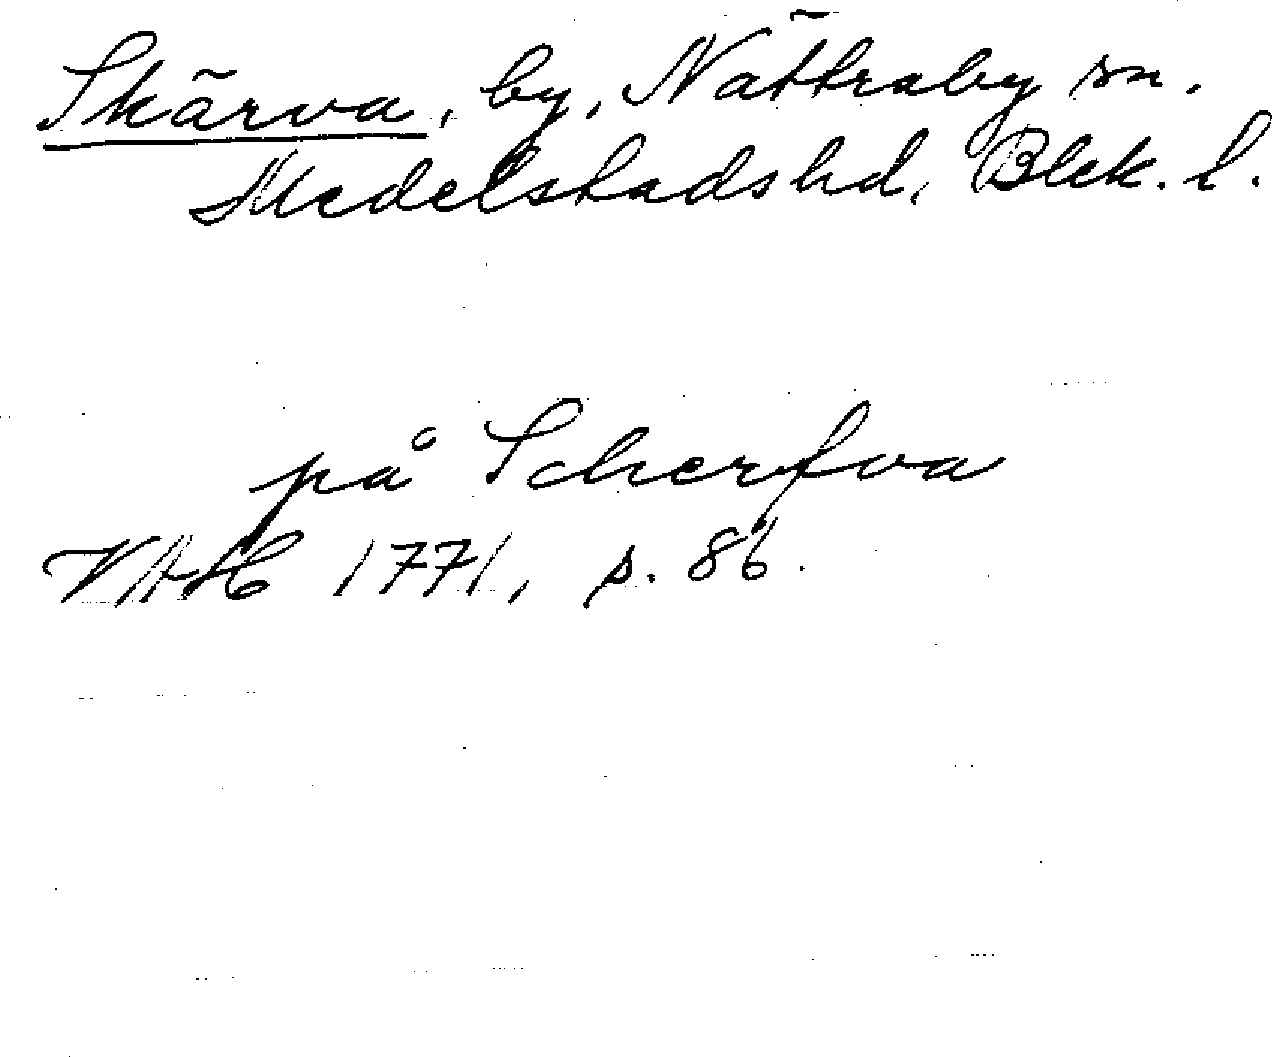 Skärva, by, Nättraby sn.
Medelstads hd, Blek. l.
på Scherfva
VAH 1771, s. 86.